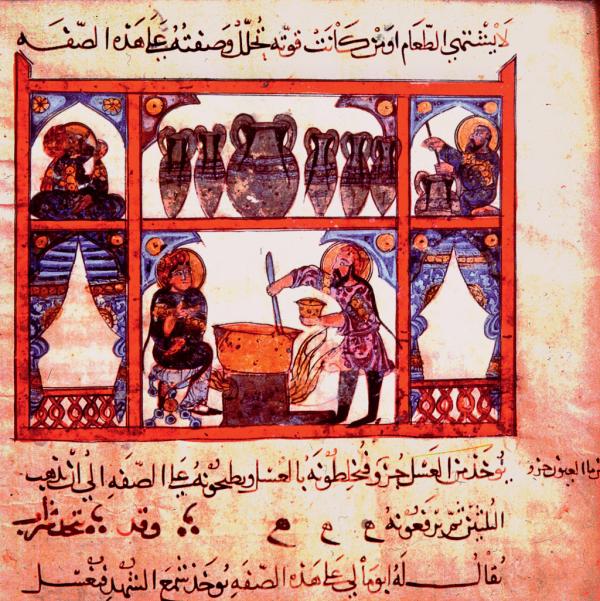 لا يشتهي الطعام او من كانت قوته تحلل وصفته على هذه الصفه
يوخذ من العسل جزو فيخلطونه بالعسل ويطبخونه على الصفه الى ان تذهب
ما العيون جزو
الثلثين ثم يرفعونه وقد يتخذ شراب
يقال له ابومالي على هذه الصفه يوخذ شمع الشهد فيغسل